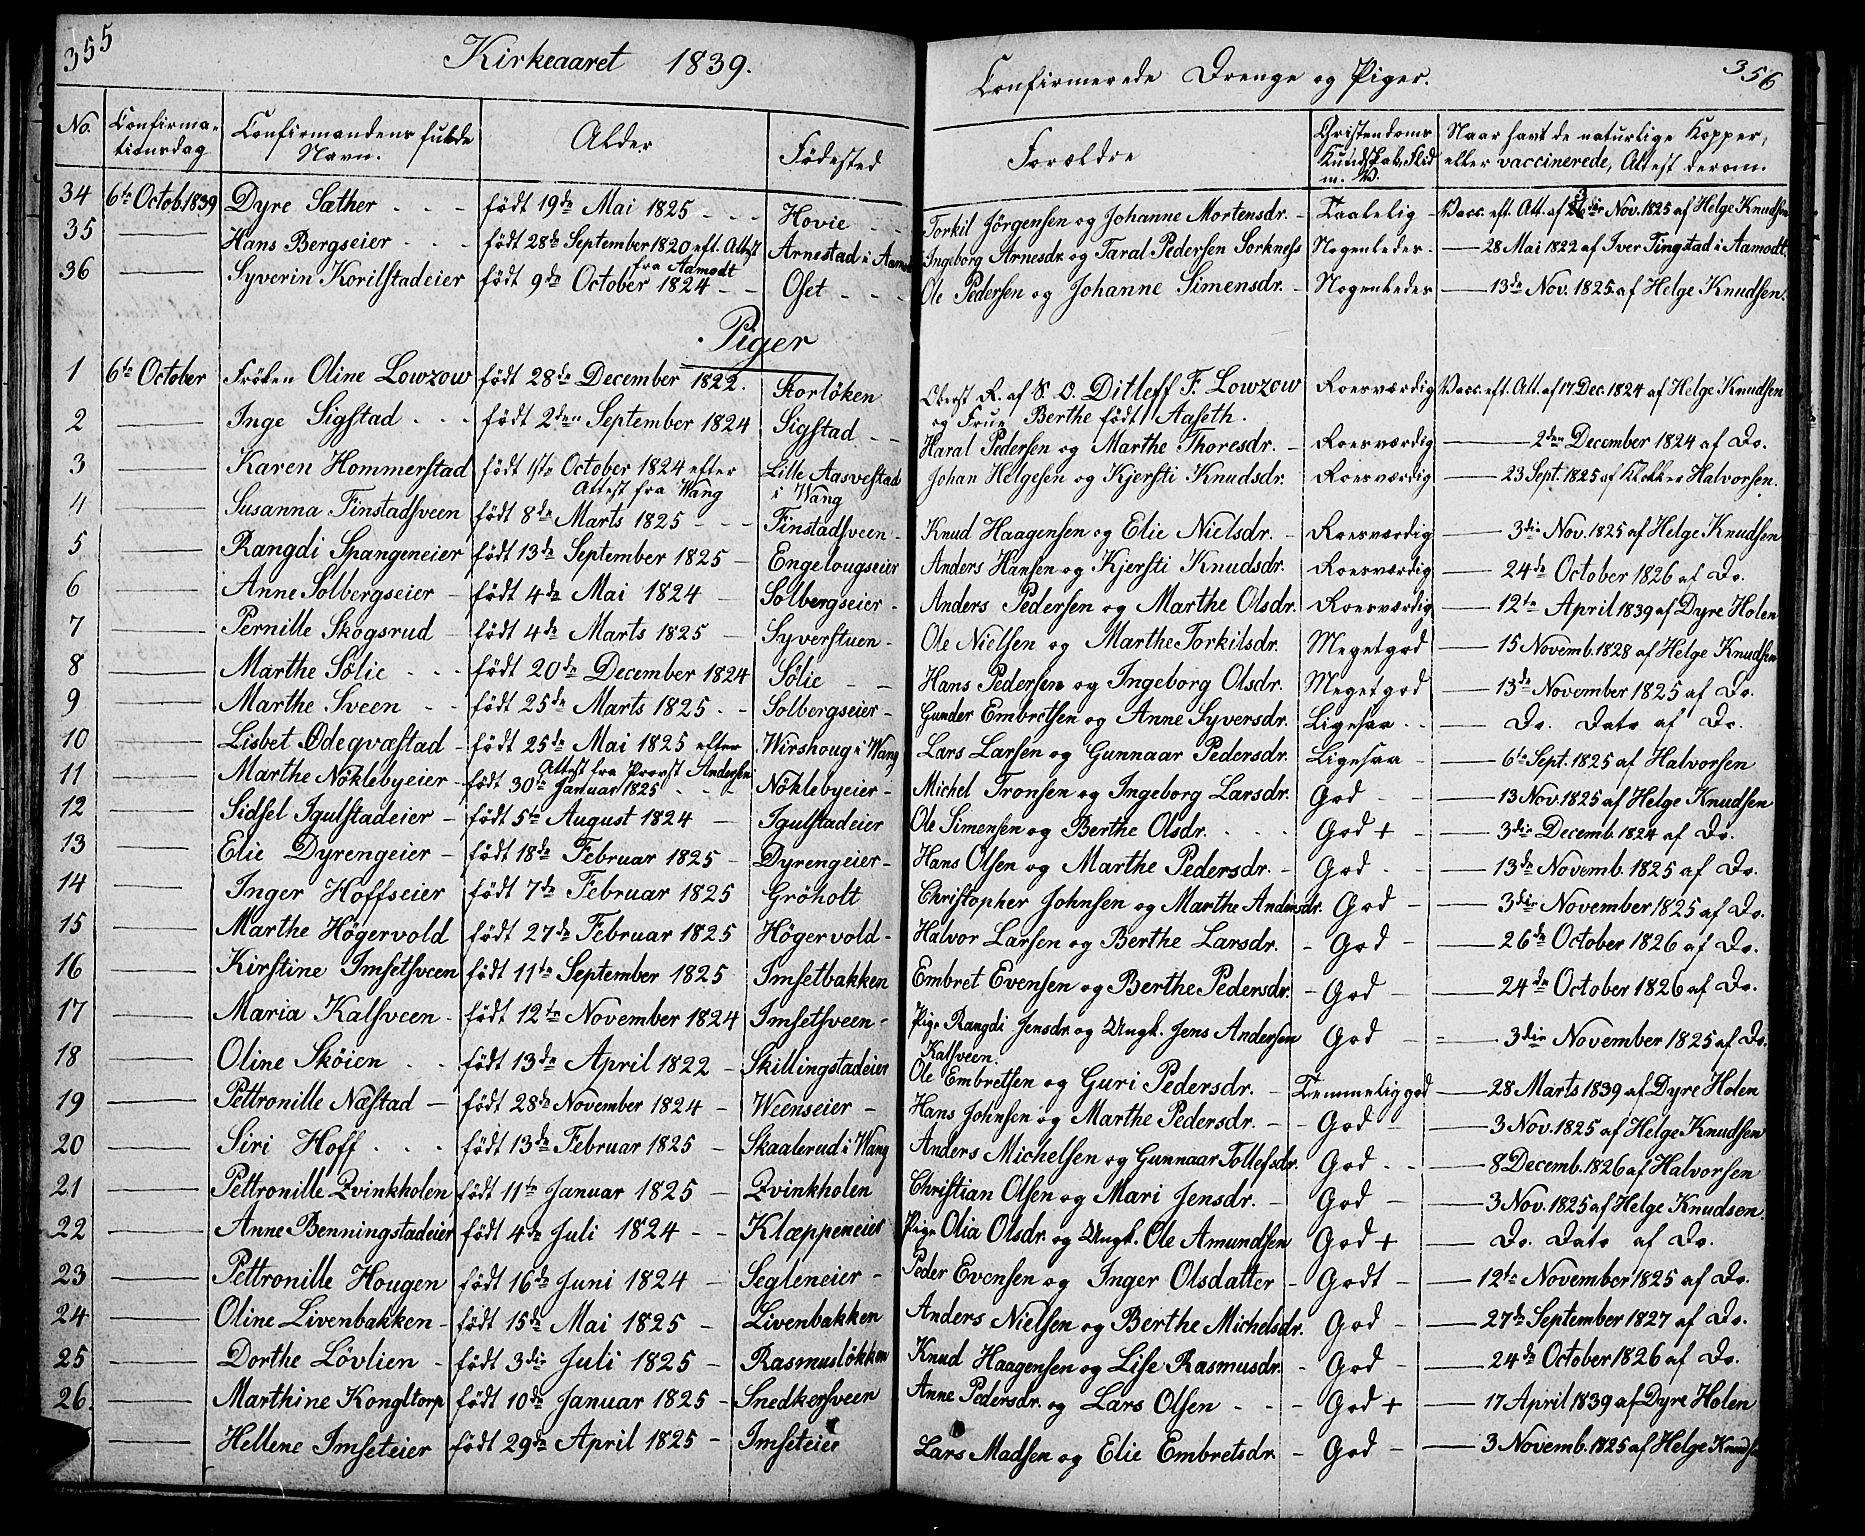 355
Kirkeaaret 1839.
No.
Confirma-
tionsdag
Confirmandens fulde
Navn.
Alder
Fødested
34 6te Octob. 1839 Dyre Sæther - - - født 19de Mai 1825 - - - Hovie - -
35 Hans Bergseier - - født 28de September 1820 eft. Attest fra Aamodt Arnestad i Aamodt
36 Syverin Korilstadeier født 9de October 1824 - - Oset - - -
Piger
1 6te October Frøken Oline Lowzow født 28de December 1822. Storløken
2 Inge Sigstad - - - født 2den September 1824 Sigstad - -
3 Karen Hommerstad født 1ste October 1824 efter Attest fra Wang Lille Aasvestad i Wang
4 Susanna Finstadsveen født 8de Marts 1825 - - - Finstadsveen -
5 Rangdi Spangeneier født 13de September 1825 - Engelougseier
6 Anne Solbergseier - født 4de Mai 1824 - Solbergseier -
7 Pernille Skogsrud - født 4de Marts 1825 - Syverstuen -
8 Marthe Sølie - - - født 20de December 1824 Sølie - -
9 Marthe Sveen - - født 25de Marts 1825 - - Solbergseier -
10 Lisbet Ødegvæstad - født 25de Mai 1825 efter Attest fra Provst Andersen Wirshoug i Wang
11 Marthe Nøklebyeier - født 30te Januar 1825 - - - Nøklebyeier -
12 Sidsel Igulstadeier - født 5te August 1824 - Igulstadeier
13 Elie Dyrengeier - født 18de Februar 1825 - Dyrengeier -
14 Inger Hoffseier født 7de Februar 1825 Grøholt
15 Marthe Høgervold født 27de Februar 1825 Høgervold -
16 Kirstine Imsetsveen født 11te September 1825 Imsetbakken
17 Maria Kalsveen - født 12te November 1824 Imsetsveen -
18 Oline Skøien - - født 13de April 1822 - Skillingstadeier
19 Pettronille Næstad - født 28de November 1824 - Weenseier -
20 Siri Hoff - - - født 13de Februar 1825 - Skaalerud i Wang
21 Pettronille Qvinkholen født 11te Januar 1825 - Qvinkholen
22 Anne Benningstadeier født 4de Juli 1824 - - Klæppeneier
23 Pettronille Hougen født 16de Juni 1824 - Segleneier -
24 Oline Livenbakken - født 15de Mai 1825 - Livenbakken
25 Dorthe Løvlien - født 3die Juli 1825 - Rasmusløkken
26. Marthine Kongltorp født 10de Januar 1825 - Snedkersveen
Hellene Imseteier født 29de April 1825 - Imseteier
356
Confirmerede Drenge og Piger.
Forældre
Christendoms
Kundskab, Flid
m. V.
Naar havt de naturlige Kopper,
eller vaccinerede, Attest derom.
Torkil Jørgensen og Johanne Mortensdr. - Taalelig - Vacc. eft. Att. af 3die Nov. 1825 af Helge Knudsen
Ingeborg Arnesdr. og Taral Pedersen Sorkness Nogenledes - 28 Mai 1822 af Iver Tingstad i Aamodt.
Ole Pedersen og Johanne Simensdr. - Nogenledes 13de Nov. 1825 af Helge Knudsen.
Oberst R. af S. O. Ditleff F. Lowzow Roesværdig Vacc. eft. Att. af 17 Dec. 1824 af Helge Knudsen
og Frue Berthe født Aaseth.
Haral Pedersen og Marthe Thoresdr. - Roesværdig 2den December 1824 af Do.
Johan Helgesen og Kjersti Knudsdr. Roesværdig 23 Sept. 1825 af Klokker Halvorsen.
Knud Haagensen og Elie Nielsdr. - Roesværdig 3die Nov. 1825 af Helge Knudsen
Anders Hansen og Kjersti Knudsdr. Roesværdig 24de October 1826 af Do.
Anders Pedersen og Marthe Olsdr. Roesværdig 12te April 1839 af Dyre Holen
Ole Nielsen og Marthe Torkilsdr. Megetgod 15 Novemb. 1828 af Helge Knudsen
Hans Pedersen og Ingeborg Olsdr. Megetgod 13de November 1825 af Do.
Gunder Embretsen og Anne Syversdr. Ligesaa - - Do. Dato af Do.
Lars Larsen og Gunnaar Pedersdr. Ligesaa - 6te Sept. 1825 af Halvorsen
Michel Tronsen og Ingeborg Larsdr. God - - 13 Nov. 1825 af Helge Knudsen
Ole Simensen og Berthe Olsdr. - - - God + - 3die Decemb. 1824 af Do.
Hans Olsen og Marthe Pedersdr. - God - - 13de Novemb. 1825 af Do.
Christopher Johnsen og Marthe Andersdr. God - 3die November 1825 af Do.
Halvor Larsen og Berthe Larsdr. - God - 26de October 1826 af Do.
Embret Evensen og Berthe Pedersdr. - God - 24de October 1826 af Do.
Pige Rangdi Jensdr. og Ungk. Jens Andersen Kalsveen God - 3die November 1825 af Do.
Ole Embretsen og Guri Pedersdr. - Temmelig god 28 Marts 1839 af Dyre Holen
Hans Johnsen og Marthe Pedersdr. - - God - 3 Nov. 1825 af Helge Knudsen
Anders Michelsen og Gunnaar Tollefsdr. God - - 8 Decemb. 1826 af Halvorsen
Christian Olsen og Mari Jensdr. - God - 3 Nov. 1825 af Helge Knudsen.
Pige Olia Olsdr. og Ungk. Ole Amundsen God + - Do. Dato af Do.
Peder Evensen og Inger Olsdatter - Godt - 12te November 1825 af Do.
Anders Nielsen og Berthe Michelsdr. God - 27de September 1827 af Do.
Knud Haagensen og Lise Rasmusdr. - God - 24de October 1826 af Do.
Anne Pedersdr. og Lars Olsen - - - God + - 17 April 1839 af Dyre Holen
Lars Madsen og Elie Embretsdr. - God - 3 Novemb. 1825 af Helge Knudsen